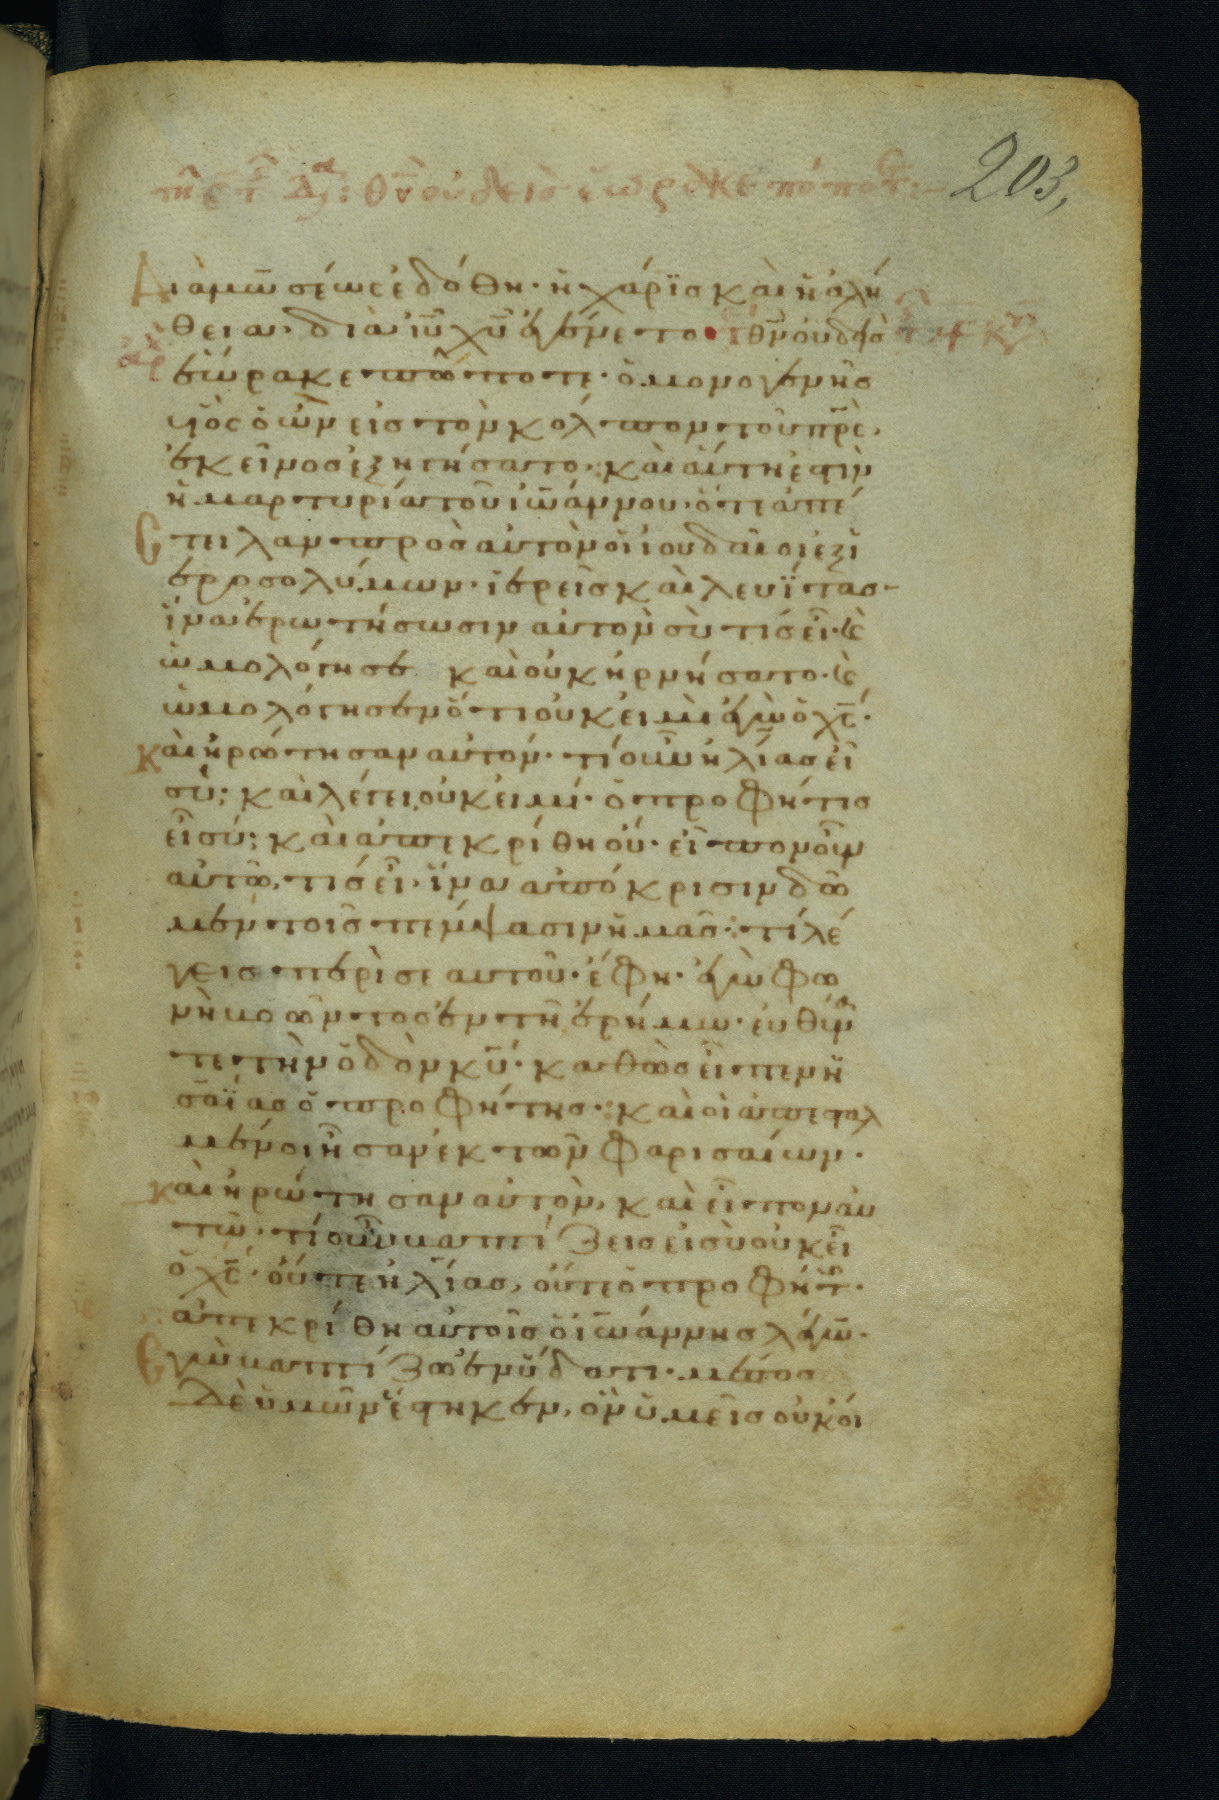 203,
θν̅ οὐδεὶσ ἑώρακε πώποτε:—
Διὰ μω̅σέως ἐδόθη· ἡ χάρϊσ καὶ ἡ ἀλή
θεια· διὰ ιυ̅ χυ̅ ἐγένετο· θν̅ οὐδεὶσ
ἑώρακε πώποτε· ὁ μονογενὴσ
υἱὸς ὁ ὢν εἰσ τὸν κολπον τοῦ πρ̅ς,
ἐκεῖνοσ ἐξηγήσατο·: καὶ αὕτη ἐστὶν
ἡ μαρτυρία τοῦ ἰω̅άννου· ὅτε ἀπέ
στειλαν πρὸσ αὐτὸν οἱ ἰουδαῖοι ἐξ ἱ
εροσολύμων· ἱερεῖσ καὶ λευΐτασ-
ἵνα ἐρωτήσωσιν αὐτὸν σὺ τίσ εἶ· κὲ
ὡμολόγησε καὶ οὐκ ἠρνήσατο· κὲ
ὡμολόγησεν ὅτι οὐκ εἰμὶ ἐγὼ ὁ χς̅·
καὶ ἠρώτησαν αὐτόν· τί οὖν ἠλίασ εἶ
σύ; καὶ λέγει, οὐκ εἰμί· ὁ προφήτισ
εἶ σύ; καὶ ἀπεκρίθη οὔ· εἶπον οὖν
αὐτῶ, τίσ εἶ· ἵνα ἀπόκρισιν δῶ
μεν τοῖσ πέμψασιν ἡμᾶσ·: τί λέ
γεισ περὶ σεαυτοῦ· ἔφη· ἐγὼ φω
νὴ βοῶντοσ ἐν τῆ ἐρήμω· εὐθύνα
τε τὴν ὁδὸν κυ̅· καθὼσ εἶπεν ἡ
σαΐασ ὁ προφήτησ·: καὶ οἱ ἀπεσταλ
μένοι ἦσαν ἐκ τῶν φαρισαίων·
καὶ ἠρώτησαν αὐτὸν, καὶ εἶπον αὐ
τῶ· τί οὖν βαπτίζεισ εἰ σὺ οὐκ εἶ
ὁ χς̅· οὔτε ἠλίασ, οὔτε ὁ προφήτ·
ἀπεκρίθη αὐτοῖσ ὁ ἰω̅άννησ λέγων·
ἐγὼ βαπτίζω ἐν ὕδατι· μέσοσ
δὲ ὑμῶν ἕστηκεν, ὃν ὑμεῖσ οὐκ οἴ